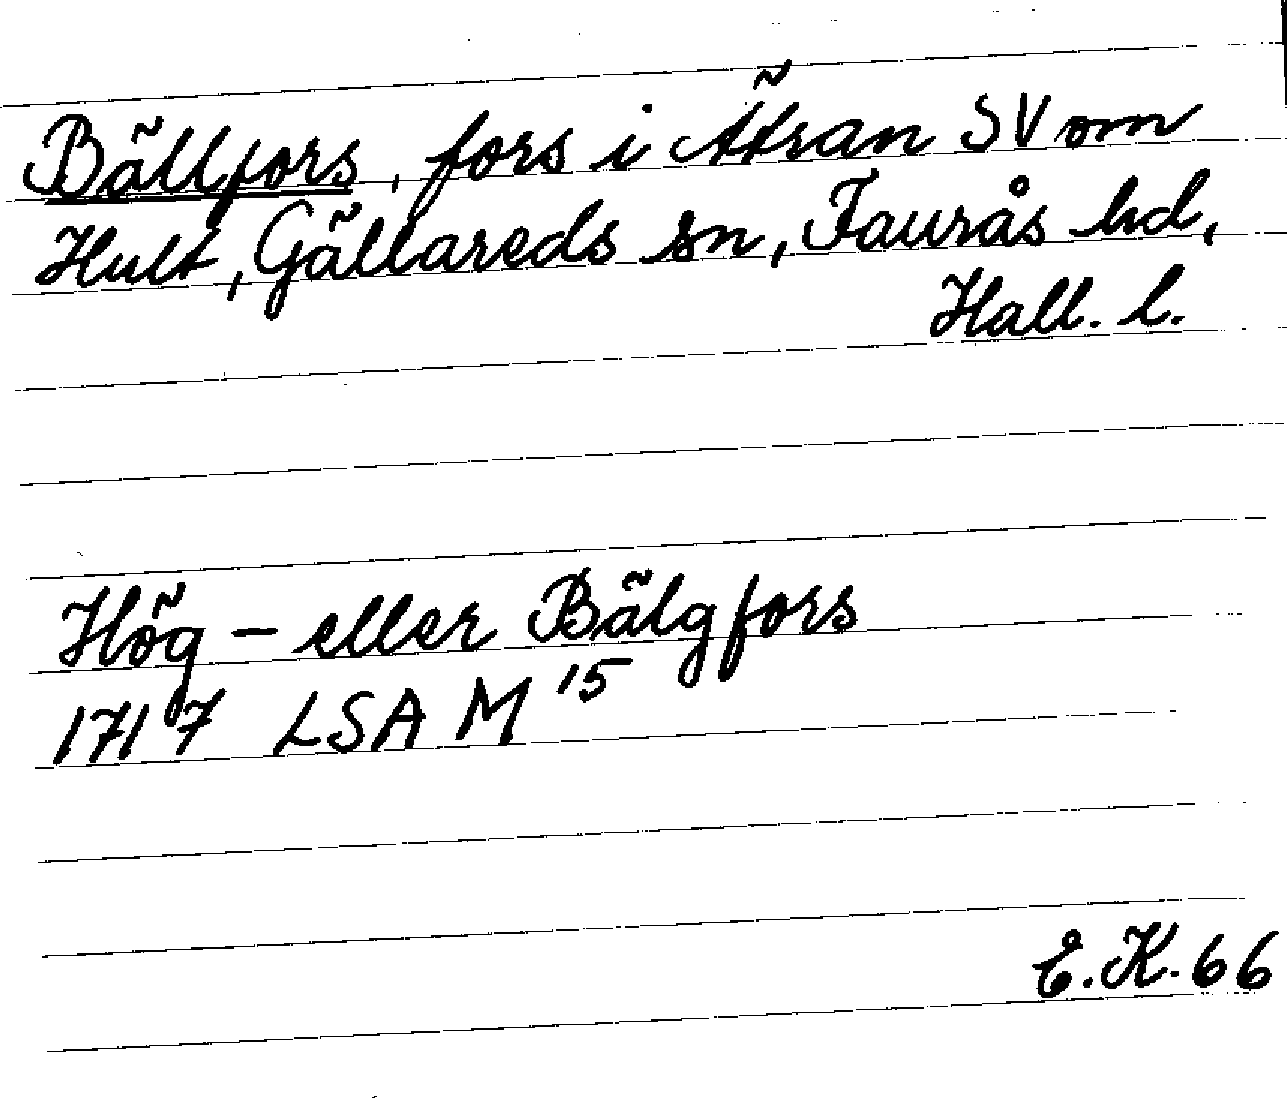 Bällfors, fors i Ätran SV om
Hult, Gällareds sn, Faurås hd,
Hall. l.
Hög - eller Bälgfors
1717 LSA M 15
E.K. 66